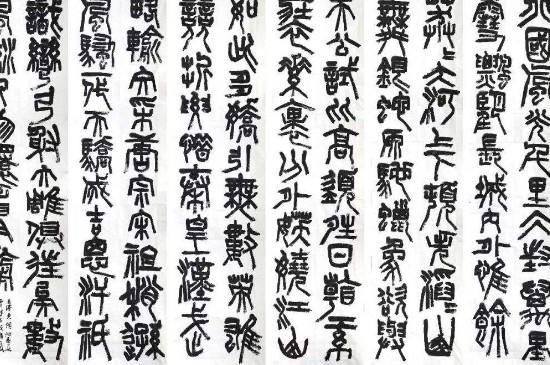 北國風光千里冰封萬里
雪飄望長城內外惟餘
莽〻大河上下頓失滔〻山
舞銀蛇原馳蠟象欲與
天公試比高須晴日看素
裝紅裹分外妖嬈江山
如此多嬌引無數英雄
競折腰惜秦皇漢武
略輸文采唐宗宋祖稍遜
風騷一代天驕成吉思汗祇
識彎弓射大雕俱往矣數
風流人物還看今朝